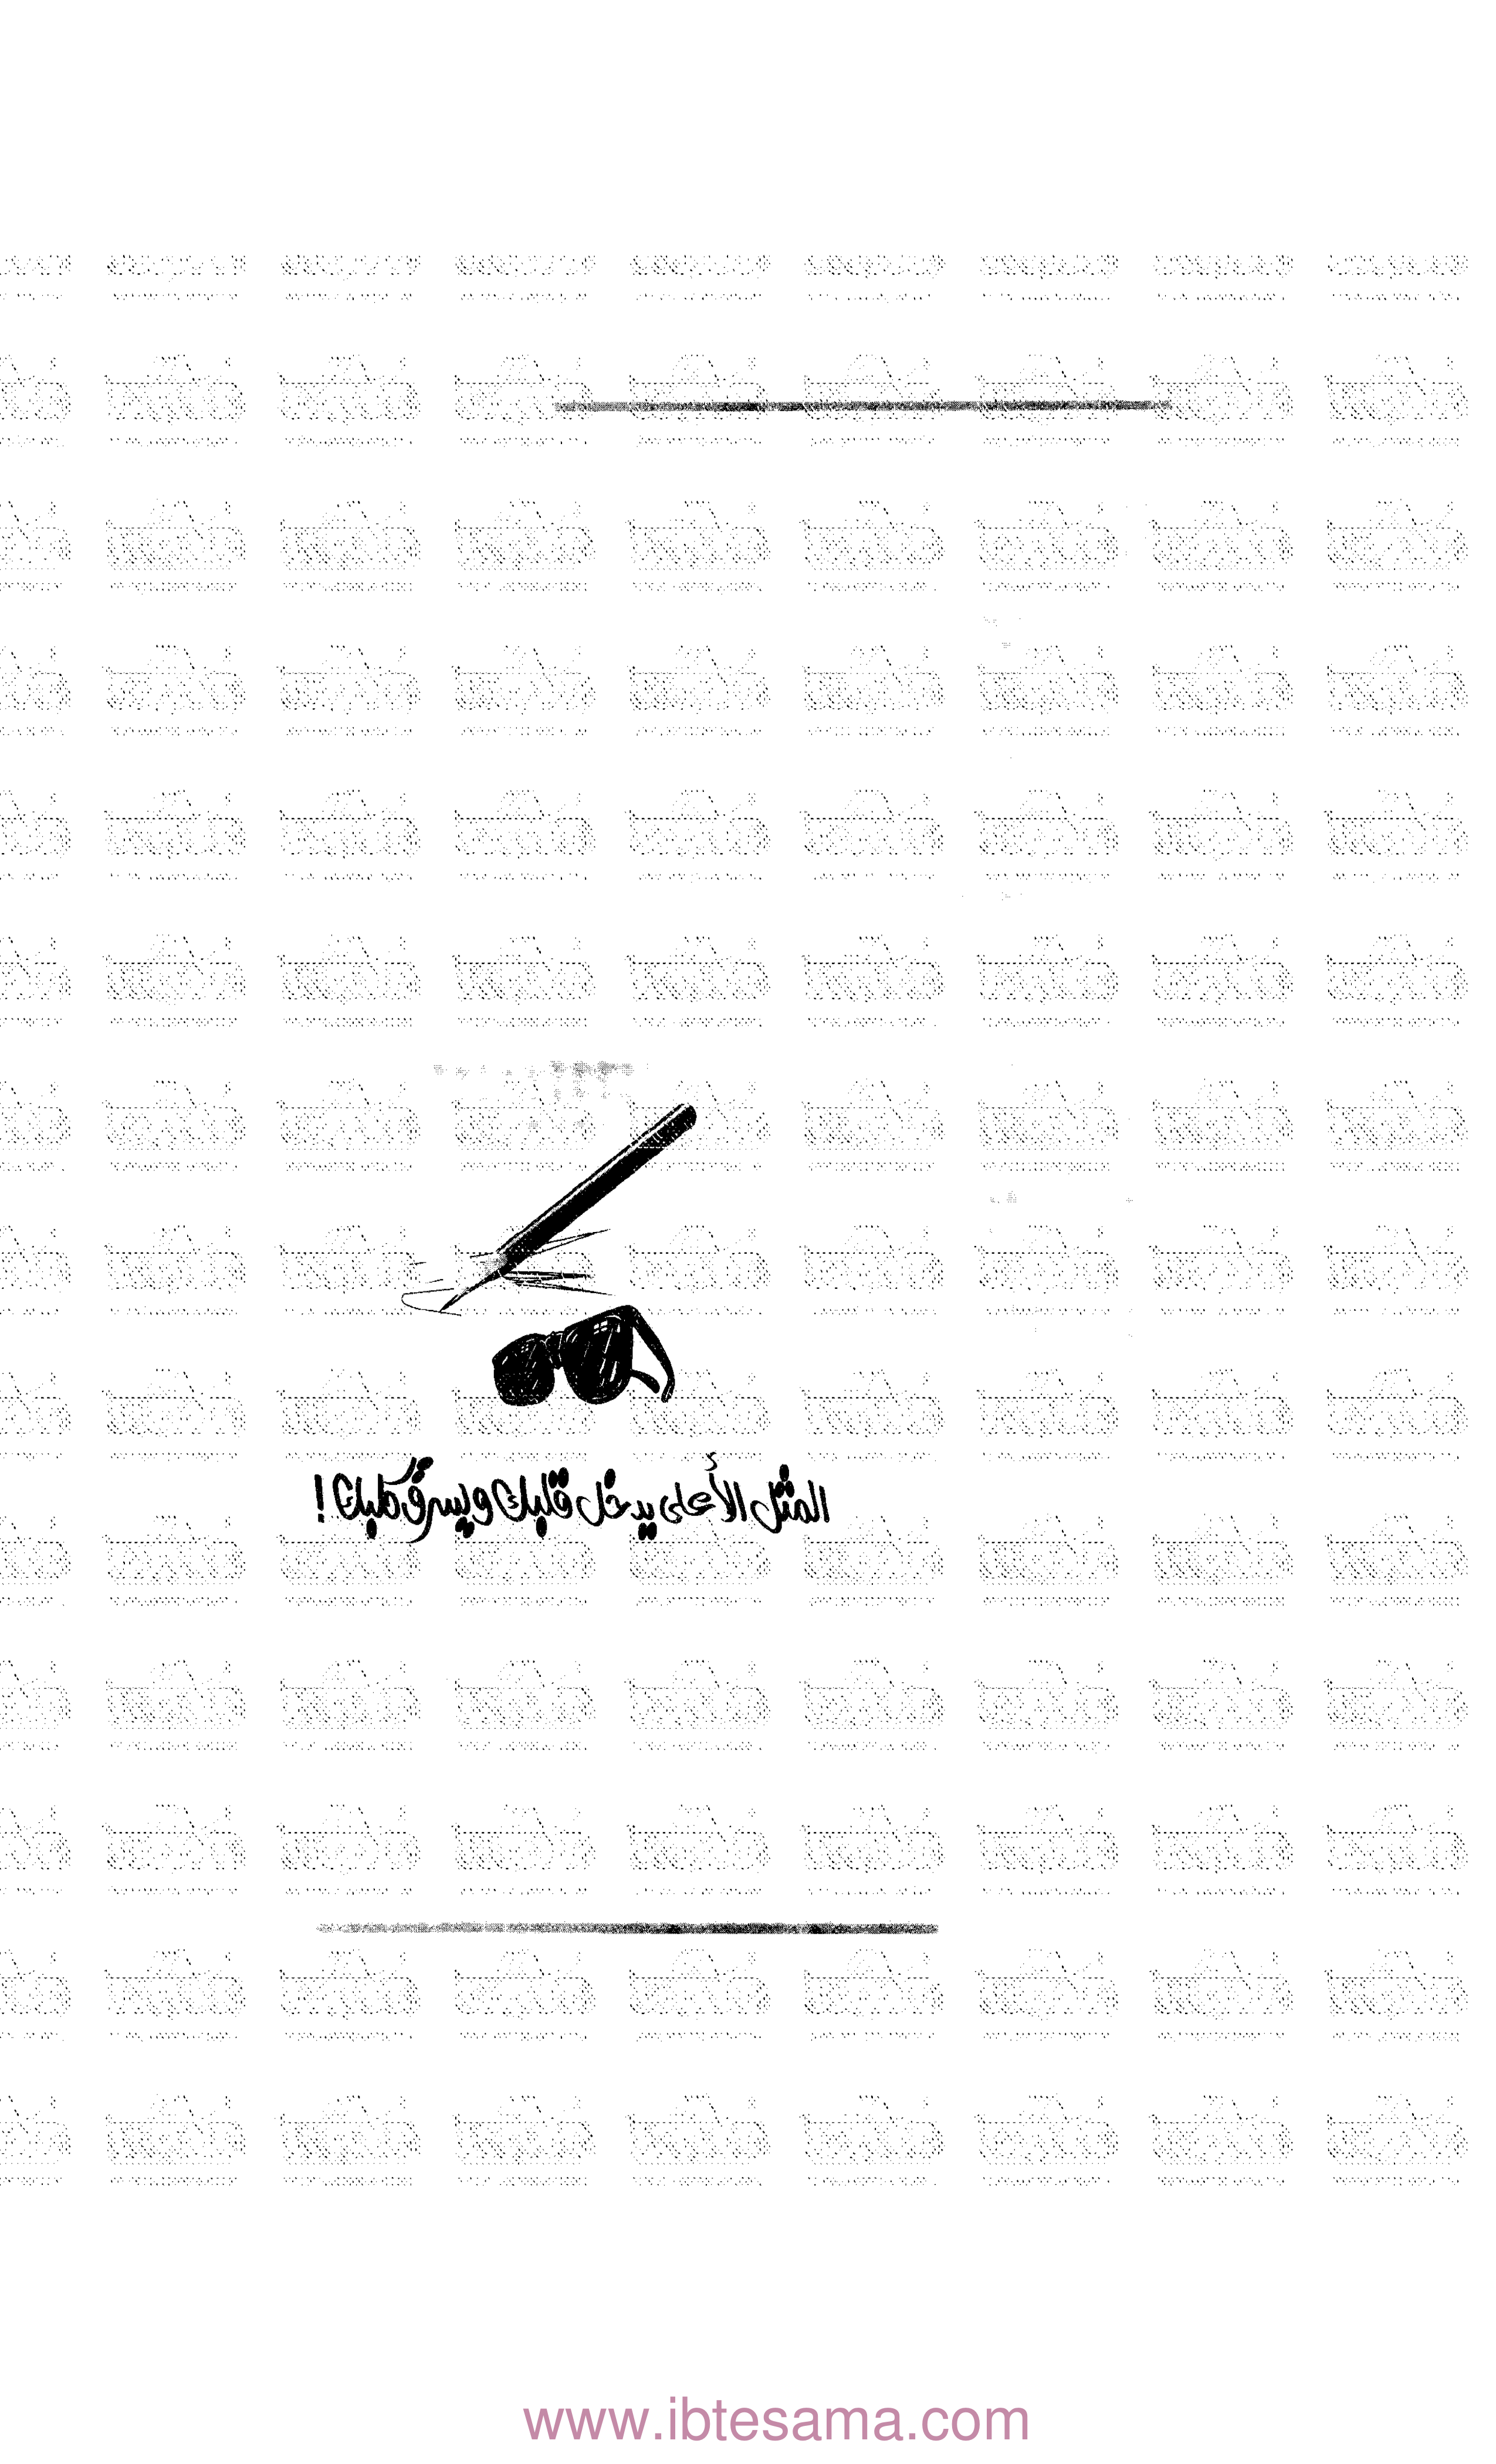 المثل الأعلى يدخل قلبك ويسرق كليك!
www.ibtesama.com